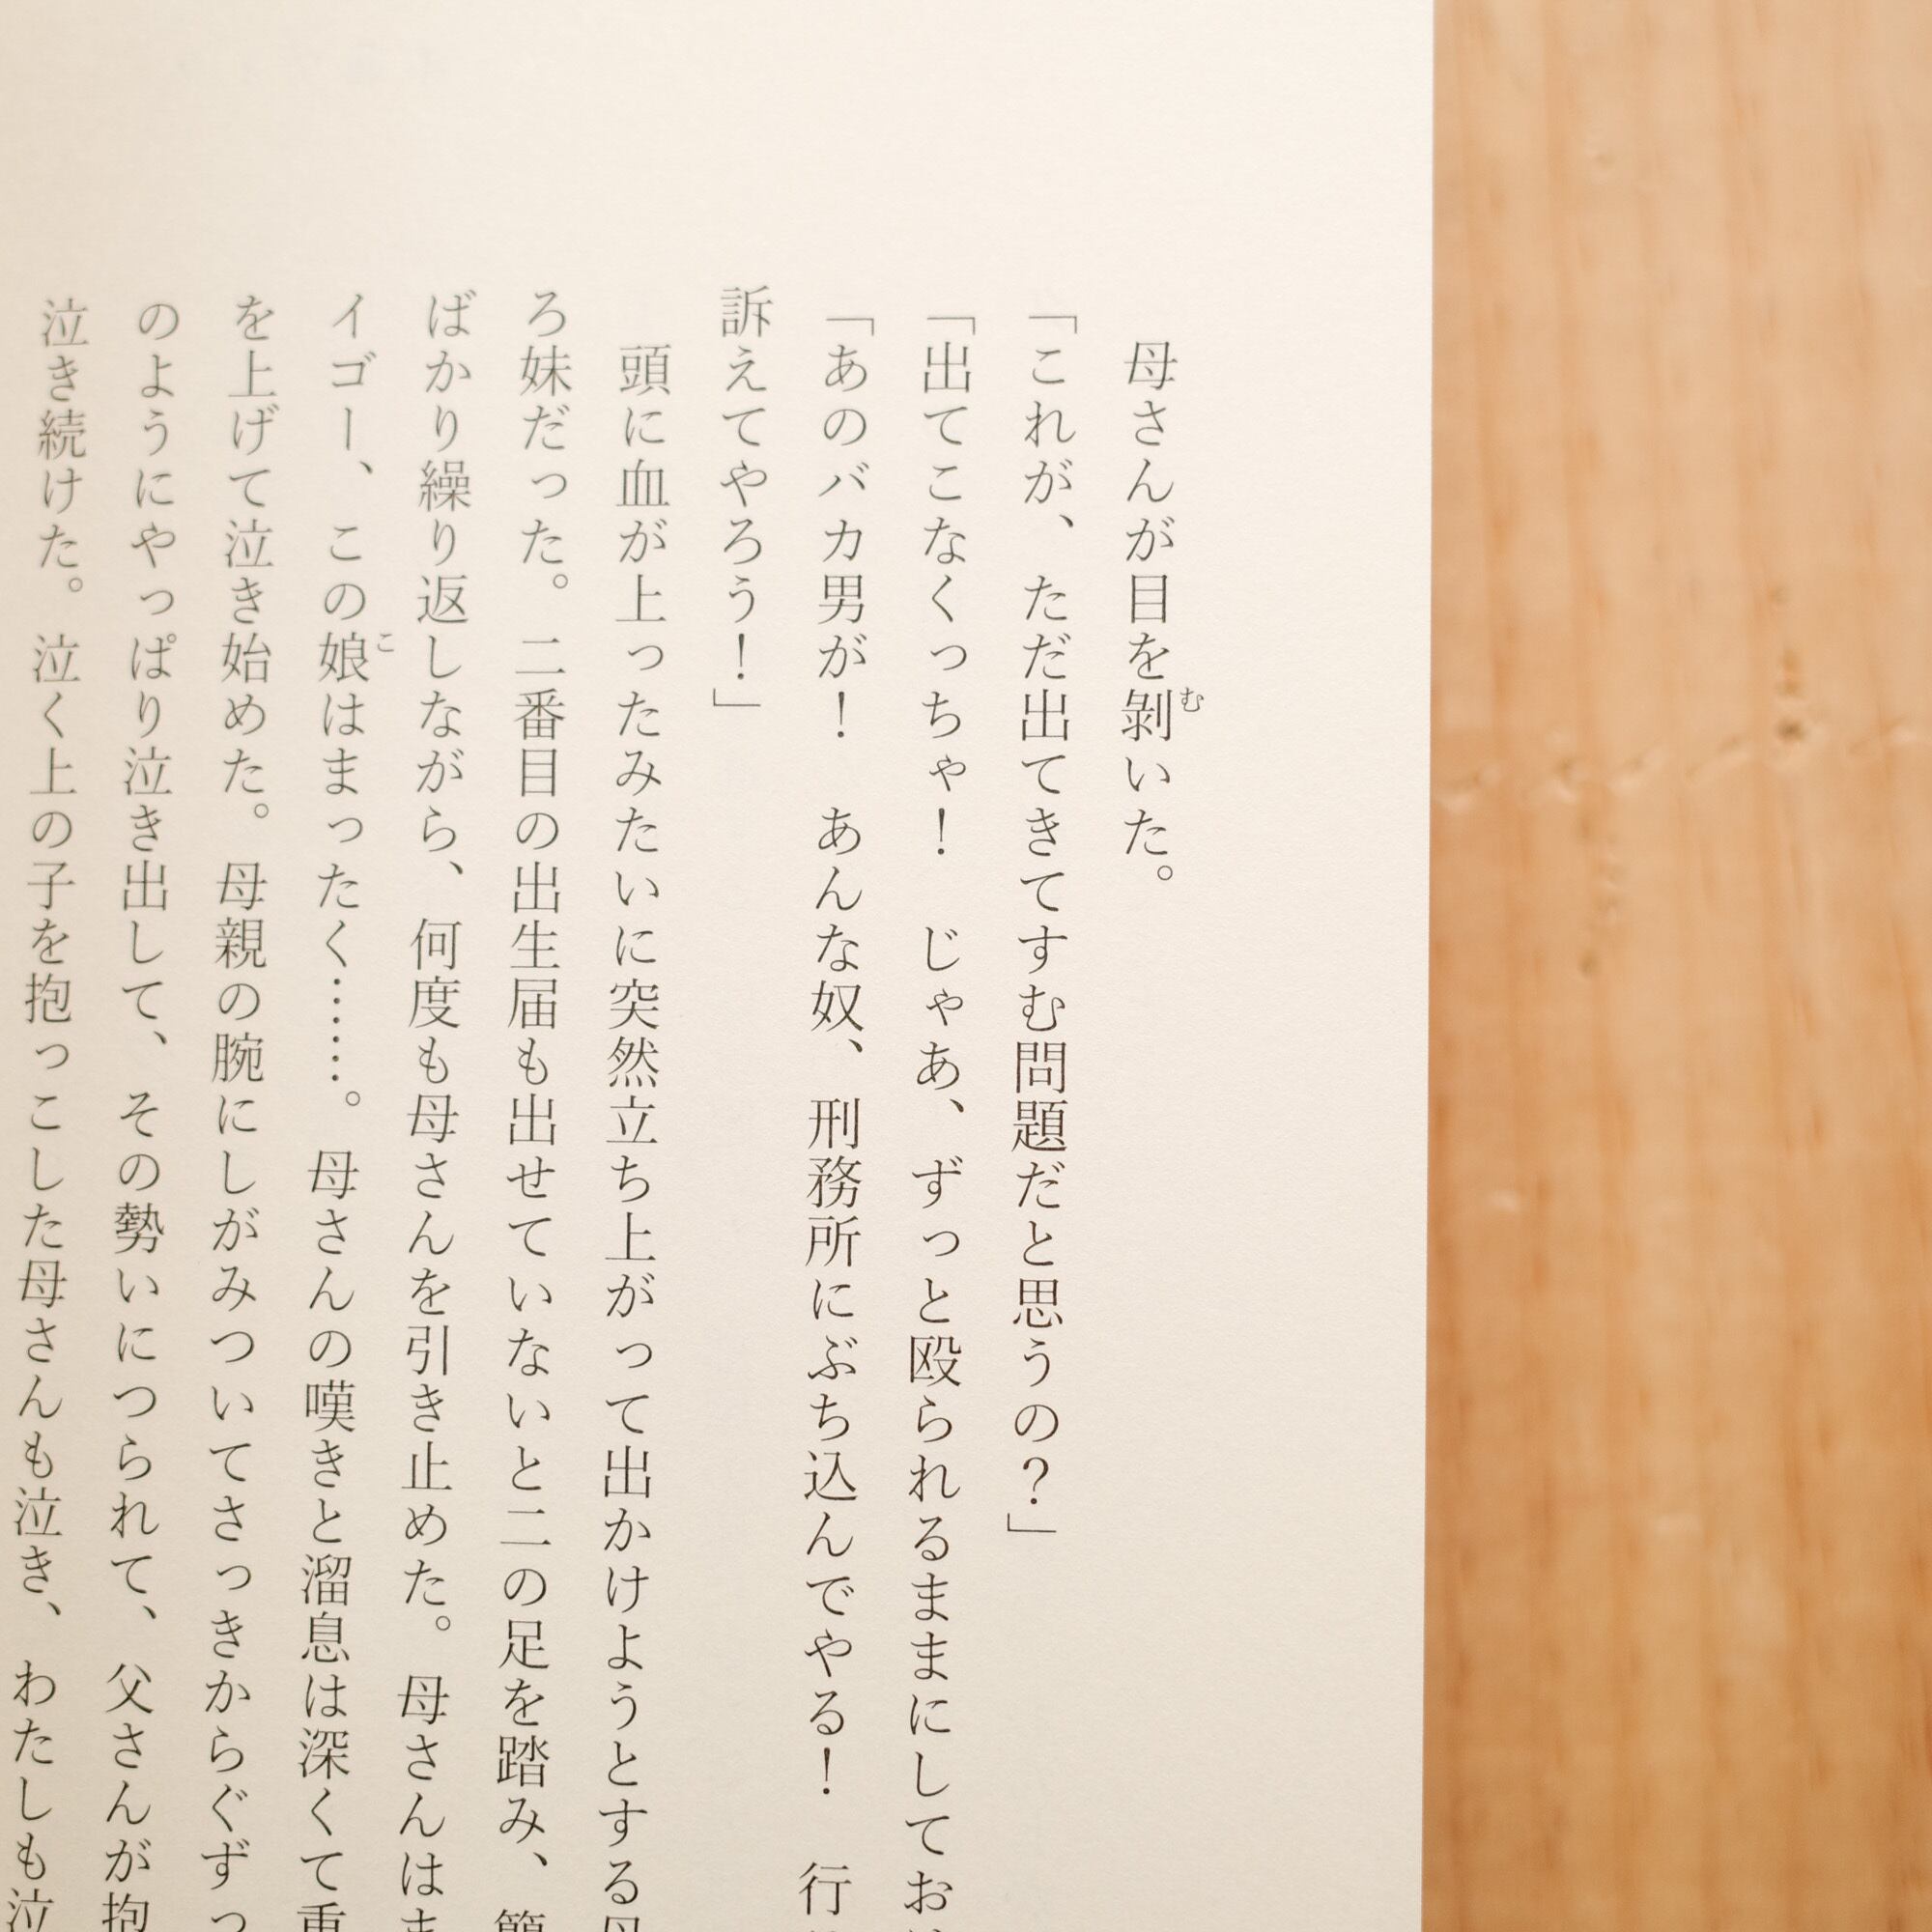 母さんが目を剝いた。
「これが、ただ出てきてすむ問題だと思うの?」
「出てこなくっちゃ! じゃあ、ずっと殴られるままにしてお
「あのバカ男が! あんな奴、刑務所にぶち込んでやる! 行
訴えてやろう!」
頭に血が上ったみたいに突然立ち上がって出かけようとする母
ろ妹だった。二番目の出生届も出せていないと二の足を踏み、簡
ばかり繰り返しながら、何度も母さんを引き止めた。母さんはま
イゴー、この娘はまったく……。母さんの嘆きと溜息は深くて重
を上げて泣き始めた。母親の腕にしがみついてさっきからぐずっ
のようにやっぱり泣き出して、その勢いにつられて、父さんが抱
泣き続けた。泣く上の子を抱っこした母さんも泣き、わたしも泣